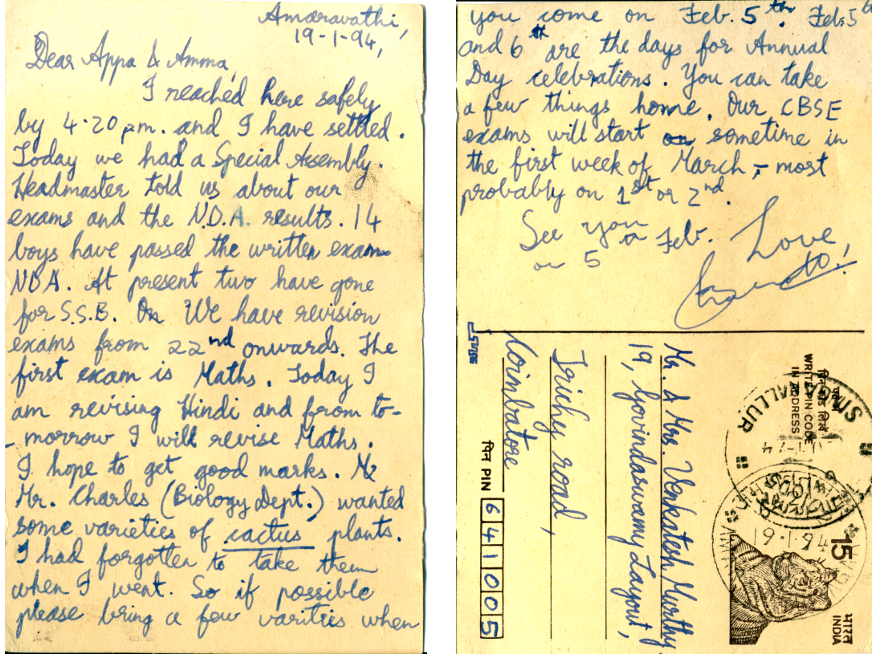 Amaravathi,
19-1-94,
Dear Appa & Amma,
I reached here safely
by 4.20 pm. and I have settled.
Today we had a Special Assembly.
Headmaster told us about our
exams and the N.D.A. results. 14
boys have passed the written exam
NDA. At present two have gone
for S.S.B. On We have revision
exams from 22nd onwards. The
first exam is Maths. Today I
am revising Hindi and from to-
-morrow I will revise Maths.
I hope to get good marks. Mr
Mr. Charles (Biology Dept.) wanted
some varieties of cactus plants.
I had forgotten to take them
when I went. So if possible
please bring a few varities when
you come on Feb. 5th. Feb 5th
and 6th are the days for Annual
Day celebrations. You can take
a few things home. Our CBSE
exams will start on sometime in
the first week of March, - most
probably on 1st or 2nd.
See you Feb.
on 5
Love
Mr. & Mrs. Venkatesh Murthy
19, Govindaswamy Layout,
Trichy road,
Coimbatore
पिन PIN 641005
पिन कोड लिखें
WRITE PIN CODE
IN ADDRESS
SINGANALLUR
15
भारत
INDIA